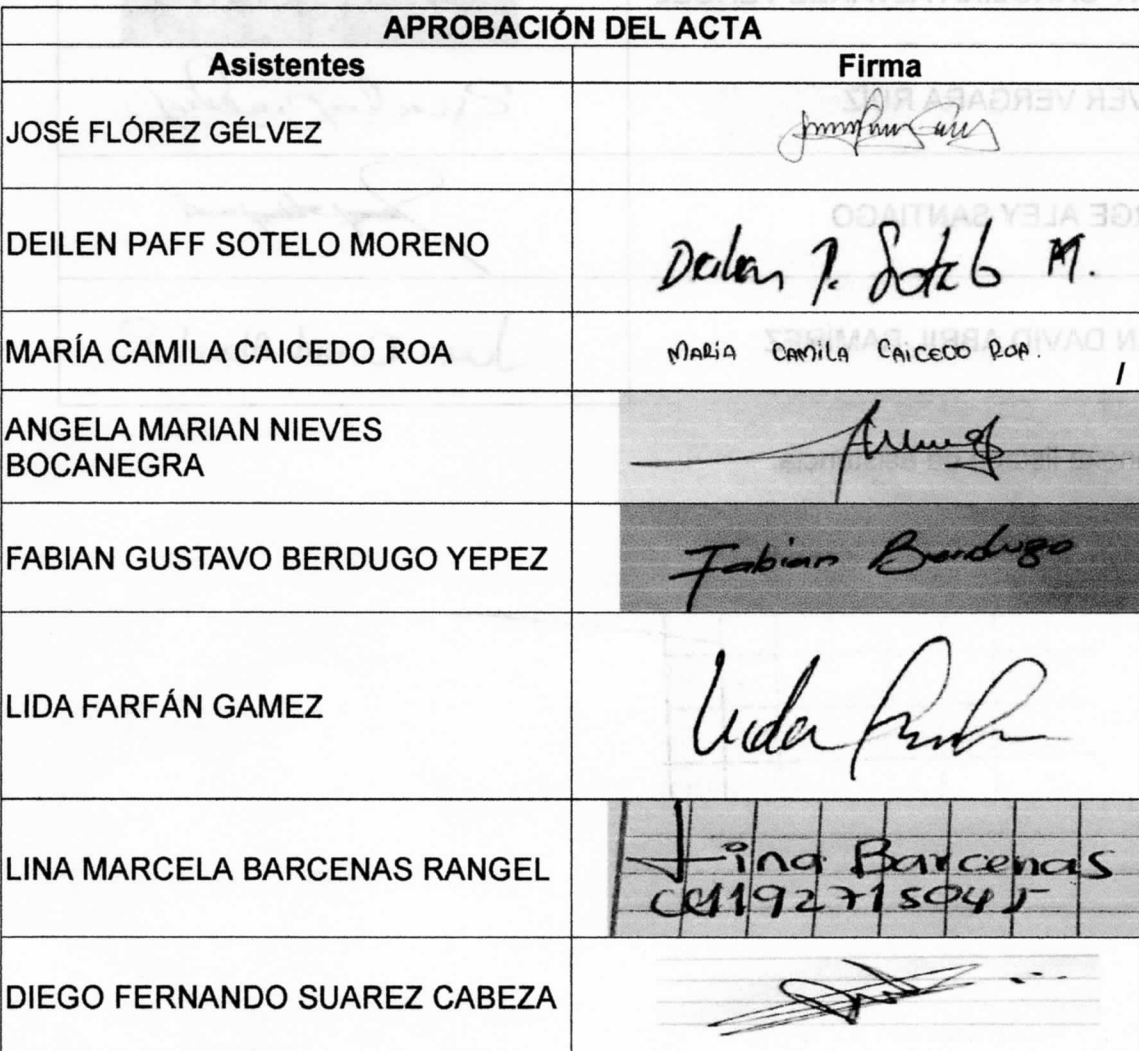 APROBACIÓN DEL ACTA
Asistentes Firma
JOSÉ FLÓREZ GÉLVEZ
DEILEN PAFF SOTELO MORENO Deilen P. Sotelo M.
MARÍA CAMILA CAICEDO ROA MARÍA CAMILA CAICEDO ROA.
ANGELA MARIAN NIEVES
BOCANEGRA
FABIAN GUSTAVO BERDUGO YEPEZ Fabian Berdugo
LIDA FARFÁN GAMEZ Lida
LINA MARCELA BARCENAS RANGEL Lina Barcenas
CC1192715045
DIEGO FERNANDO SUAREZ CABEZA